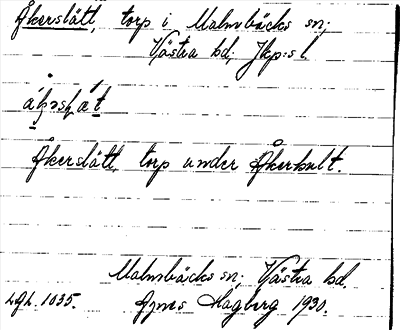 Åkerslätt, torp i Malmbäcks sn;
Västra hd; Jkp:s l.
Åkerslätt, torp under Åkerhult.
Malmbäcks sn; Västra hd.
Lgh. 1035. Agnes Hagberg 1930.